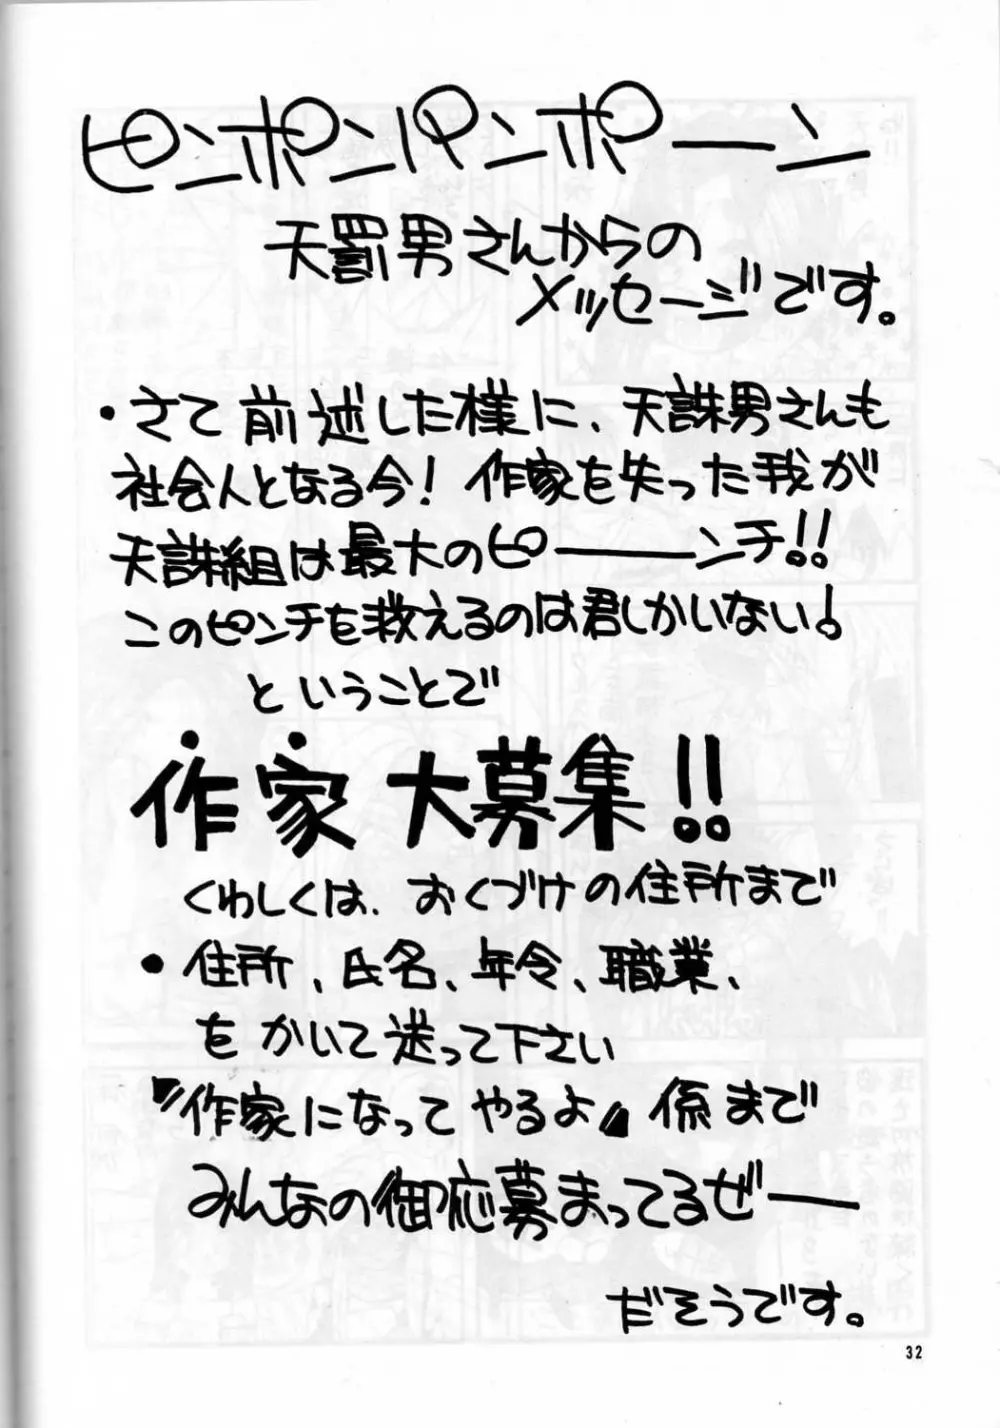 ピンポンパンポーン
天罰男さんからの
メッセージです。
・さて前述した様に、天誅男さんも
社会人となる今！作家を失った我が
天誅組は最大のピーーンチ！！
このピンチを救えるのは君しかいない！
ということで
作家大募集！！
くわしくは、おくづけの住所まで
・住所、氏名、年令、職業、
をかいて送って下さい
『作家になってやるよ』係まで
みんなの御応募まってるぜー
だそうです。
32